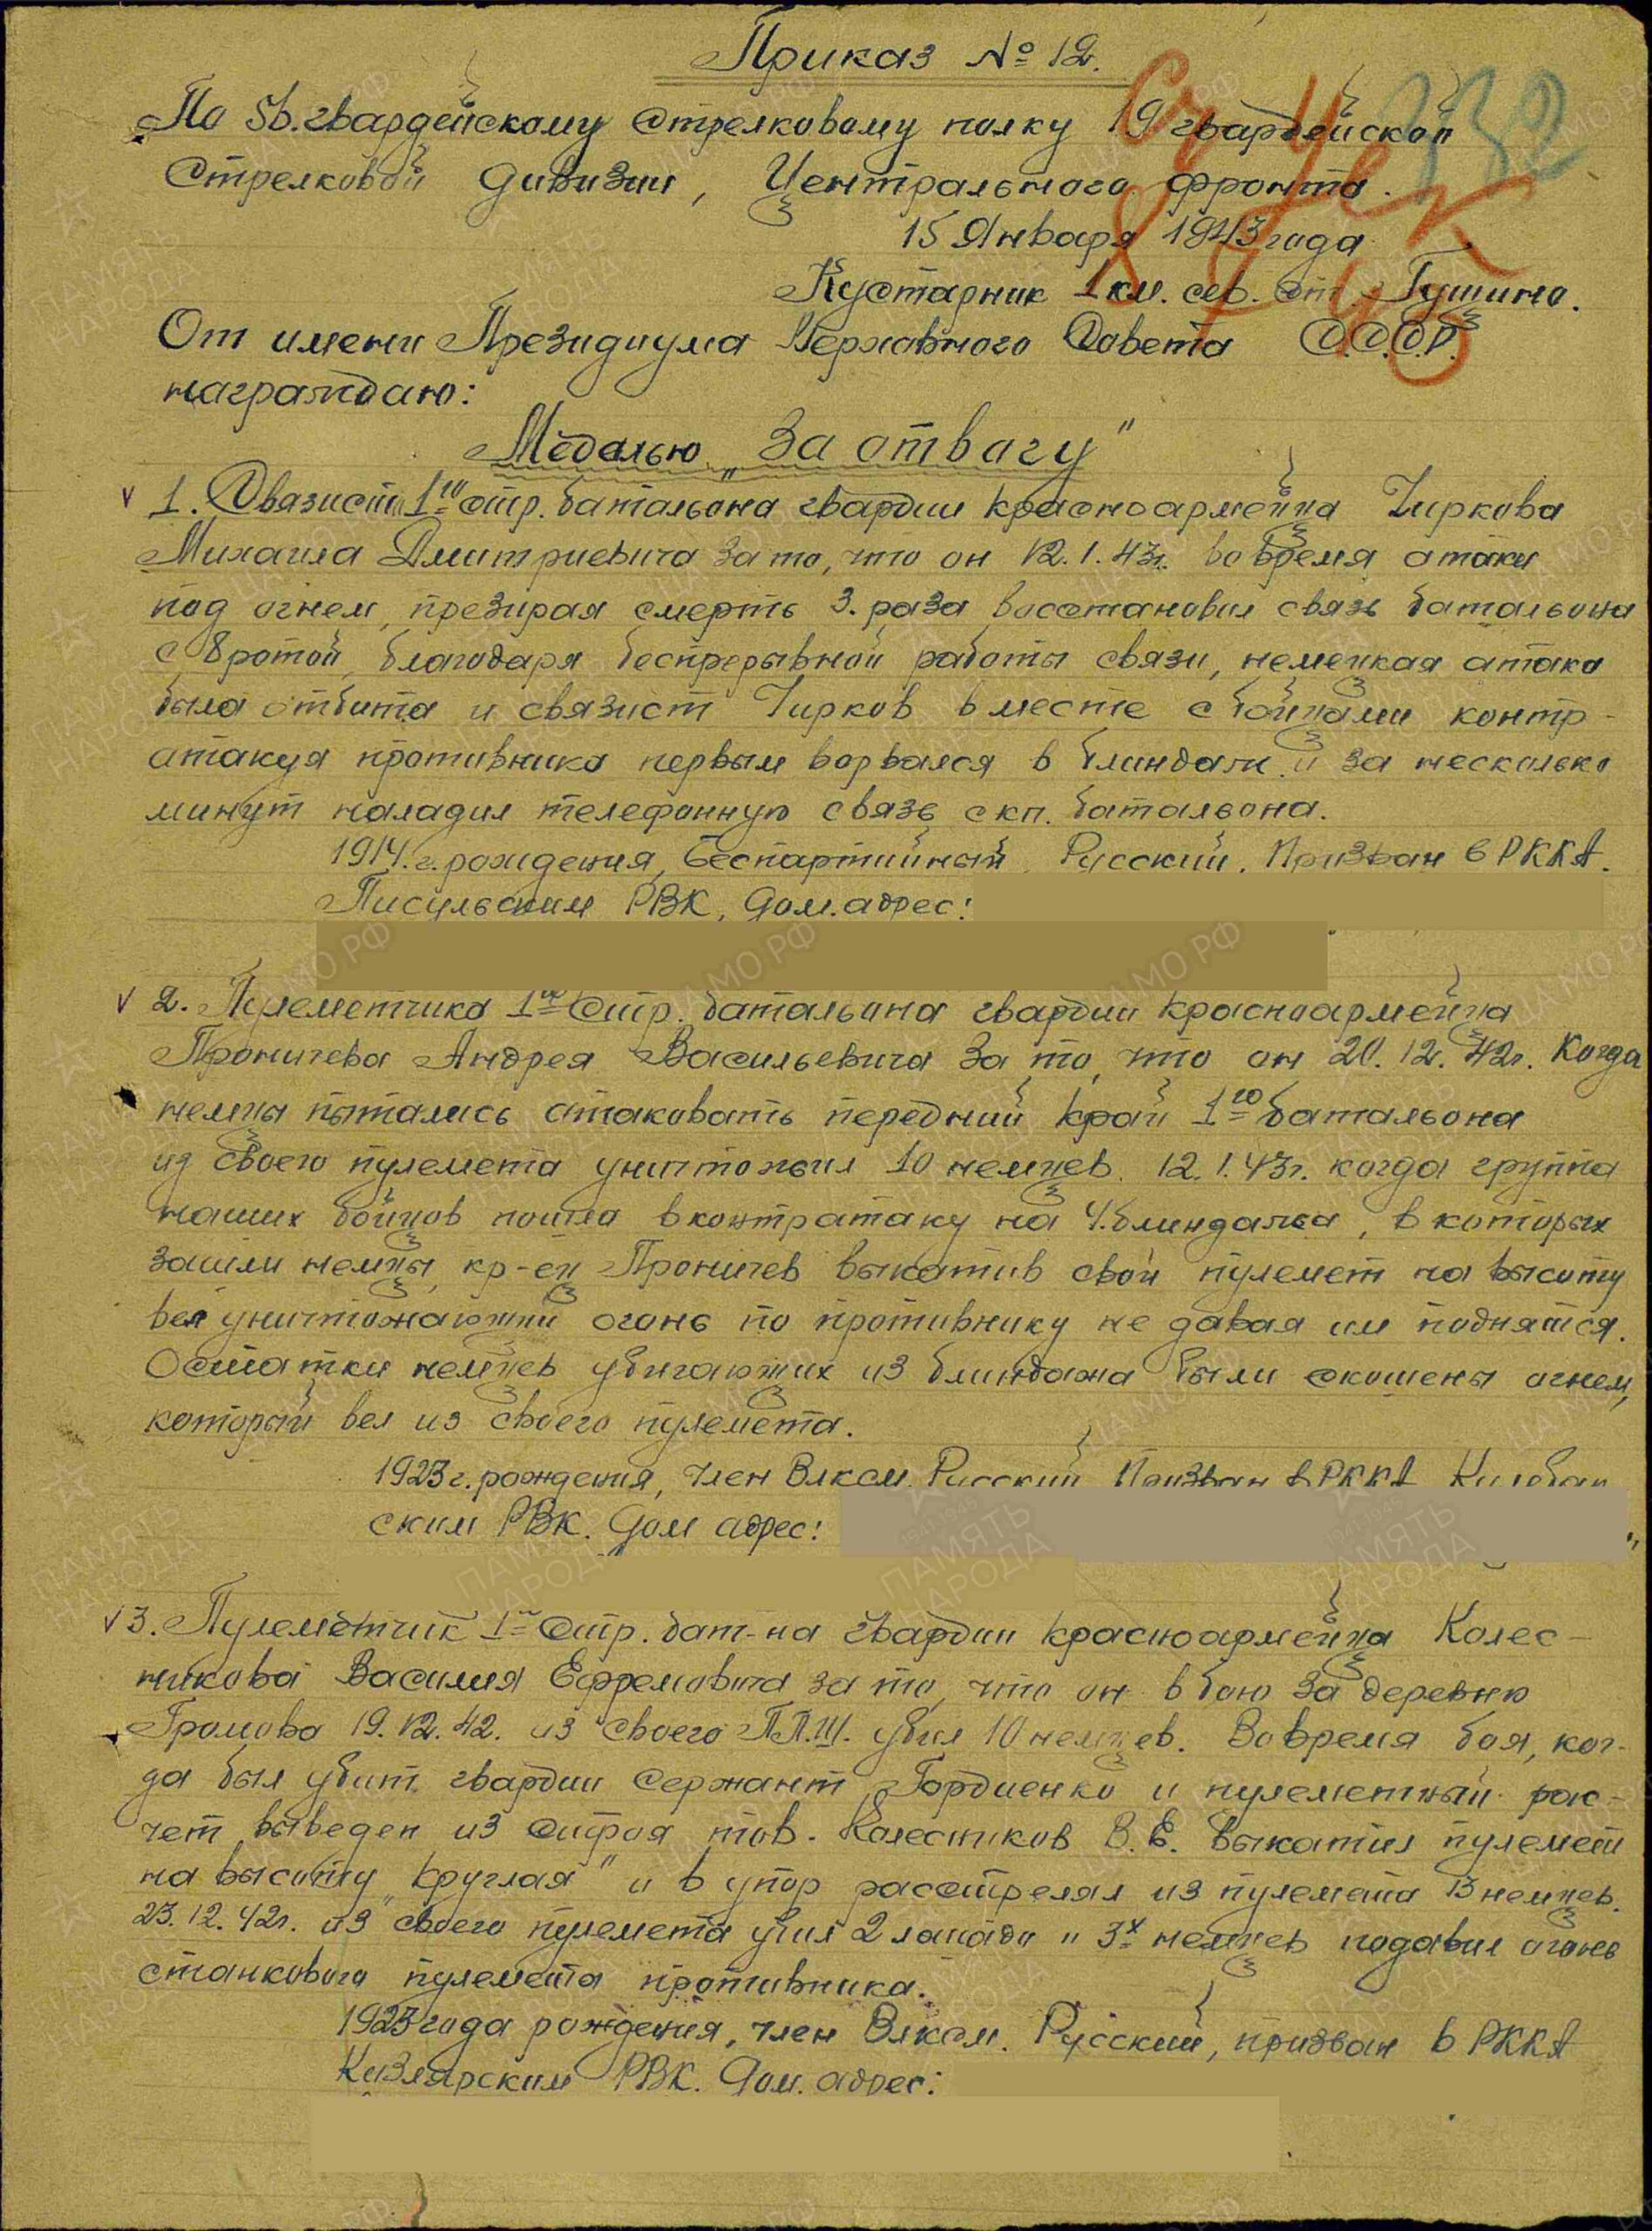 Приказ № 12.
По 56. гвардейскому стрелковому полку 19 гвардейской
стрелковой дивизии, Центрального фронта.
15 Января 1943 года
Кустарник 1 км. сев. от
От имени Президиума Верховного Совета С.С.С.Р.
награждаю:
Медалью „За отвагу"
1. Связист 1го стр. батальона гвардии красноармейца Чиркова
Михаила Дмитриевича за то, что он 12.1.43г. во время атаки
под огнем, презирая смерть 3. раза восстановил связь батальона
с 8 ротой, благодаря беспрерывной работы связи, немецкая атака
была отбита и связист Чирков вместе с бойцами контр-
атакуя противника первым ворвался в блиндаж и за несколько
минут наладил телефонную связь с кп. батальона.
1914. г. рождения, Беспартийный, Русский. Призван в РККА.
РВК, Дом. адрес:
2. Пулеметчика 1го стр. батальона гвардии красноармейца
Проничева Андрея Васильевича за то, что он 20.12.42г. Когда
немцы пытались атаковать передний край 1го батальона
из своего пулемета уничтожил 10 немцев. 12.1.43г. когда группа
наших бойцов пошла в контратаку на 4. блиндажа, в которых
зашли немцы, кр-ец Проничев выкатив свой пулемет на высоту
вел уничтожающий огонь по противнику не давая им поднятся.
Остатки немцев убигающих из блиндажа были скошены огнем,
который вел из своего пулемета.
1923 г. рождения, член Влксм. Русский Призван в РККА
ским РВК. Дом адрес:
3. Пулеметчик 1го стр. бат-на гвардии красноармейца Колес-
никова Василия Ефремовича за то, что он в бою за деревню
Громово 19.12.42. из своего П.П.Ш. убил 10 немцев. Вовремя боя, ког-
да был убит гвардии Сержант Гордиенко и пулеметный рас-
чет выведен из строя тов. Колесников В.Е. выкатил пулемет
на высоту „Круглая" и в упор расстрелял из пулемета 13 немцев.
23.12.42г. из своего пулемета убил 2 лошади и 3х немцев подавил огонь
станкового пулемета противника.
1923 года рождения, член Влксм. Русский, призван в РККА
Кизлярским РВК. Дом. адрес: